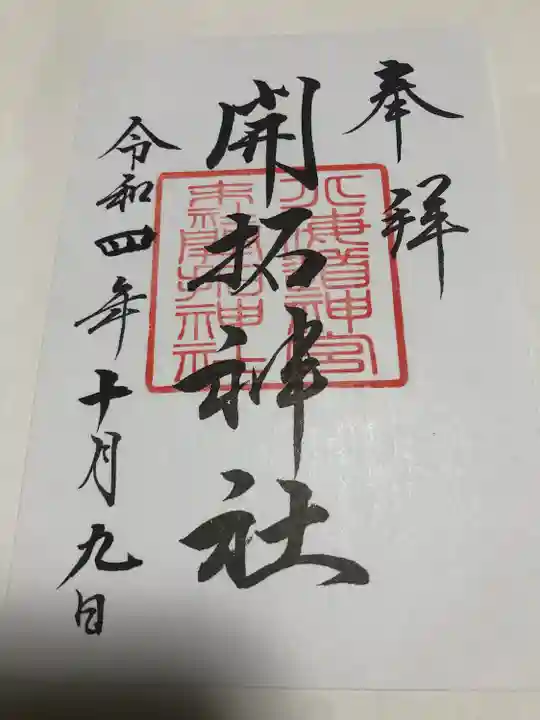 奉拝
開拓神社
北海道神宮
末社開拓神社
令和四年十月九日